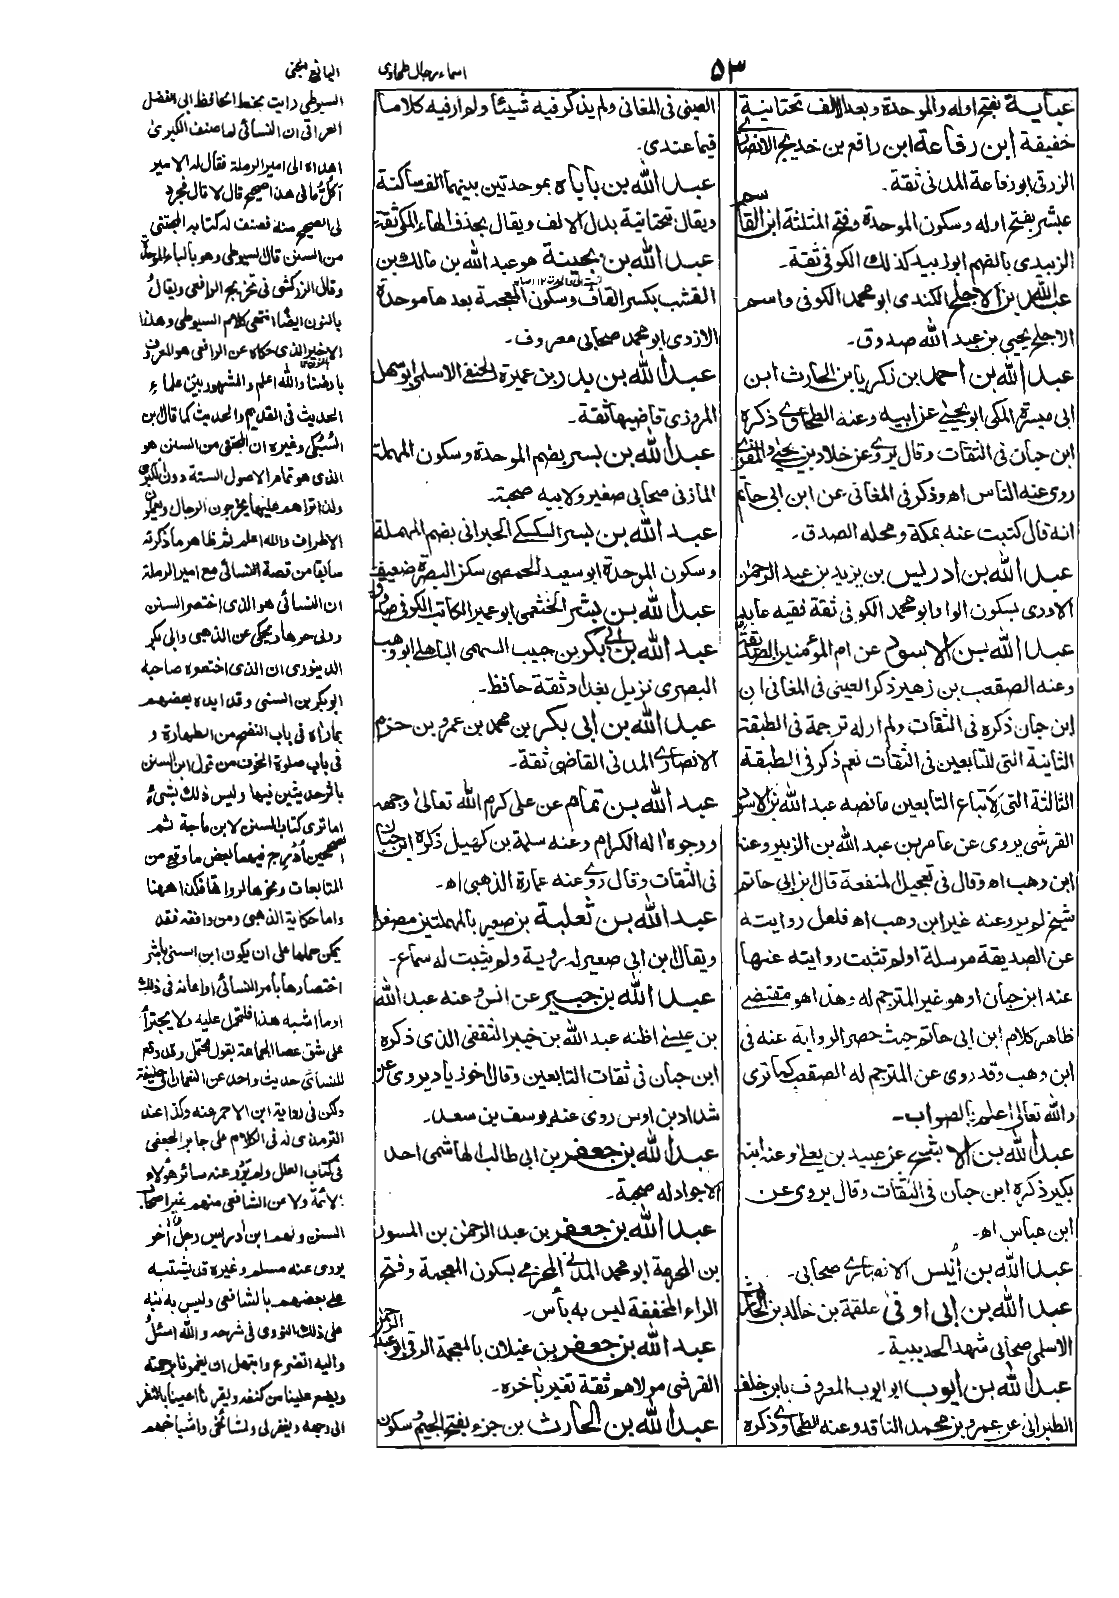 ۵۳
اسماء رجال طحاوی
الیانع مجنی
عباية بفتح اوله والموحدة وبعد الالف تحتانية
خفيفة ابن رفاعة ابن رافع بن خديج الانصاري
الزرقي ابو رفاعة المدني ثقة۔
عبثر بفتح اوله وسكون الموحدة وفتح المثلثة ابن القاسم
الزبيدي بالضم ابو زبيد كذلك الكوفي ثقة۔
عبد الله بن الاجلح الكندي ابو محمد الكوفي واسم
الاجلح يحيى بن عبد الله صدوق۔
عبد الله بن احمد بن زكريا بن الحارث ابن
ابي ميسرة المكي ابو يحيى عن ابيه وعنه الطحاوي ذكره
ابن حبان في الثقات وقال يروي عن خلاد بن يحيى والمقري
روى عنه الناس اه وذكر في المغاني عن ابن ابي حاتم
انه قال كتبت عنه بمكة ومحله الصدق۔
عبد الله بن ادريس بن يزيد بن عبد الرحمن
الاودي بسكون الواو ابو محمد الكوفي ثقة فقيه عابد
عبد الله بن الاسود عن ام المؤمنين الصديقة
وعنه الصقعب بن زهير ذكر العيني في المغاني ان
ابن حبان ذكره في الثقات ولم ار له ترجمة في الطبقة
الثانية التي للتابعين في الثقات نعم ذكر في الطبقة
الثالثة التي لاتباع التابعين ما نصه عبد الله بن الاسود
القرشي يروي عن عامر بن عبد الله بن الزبير وعنه
ابن وهب اه وقال في تعجيل المنفعة قال ابن ابي حاتم
شيخ لم يرو عنه غير ابن وهب اه فلعل روايته
عن الصديقة مرسلة او لم تثبت روايته عنها
عند ابن حبان او هو غير المترجم له وهذا هو مقتضى
ظاهر كلام ابن ابي حاتم حيث حصر الرواية عنه في
ابن وهب وقد روى عن المترجم له الصقعب كما ترى
والله تعالى اعلم بالصواب۔
عبد الله بن الاشج عن عبيد بن يعلى وعنه ابنه
بكير ذكره ابن حبان في الثقات وقال يروي عن
ابن عباس اه۔
عبد الله بن أُنيس الانصاري صحابي۔
عبد الله بن ابي اوفى علقمة بن خالد بن الحارث
الاسلمي صحابي شهد الحديبية۔
عبد الله بن ايوب ابو ايوب المعروف بابن خلف
الطبراني عن عمرو بن محمد الناقد وعنه الطحاوي ذكره
العيني في المغاني ولم يذكر فيه شيئا ولم ار فيه كلاما
فيما عندي۔
عبد الله بن باباه بموحدتين بينهما الف ساكنة
ويقال بتحتانية بدل الالف ويقال بحذف الهاء المكي ثقة
عبد الله بن بحينة هو عبد الله بن مالك بن
القشب بكسر القاف وسكون المعجمة بعدها موحدة
الازدي ابو محمد صحابي معروف۔
عبد الله بن بدر بن عميرة الحنفي الاسلمي ابو سهل
المروزي قاضيها ثقة۔
عبد الله بن بسر بضم الموحدة وسكون المهملة
المازني صحابي صغير ولابيه صحبة۔
عبد الله بن بسر السكسكي الحبراني بضم المهملة
وسكون الموحدة ابو سعيد الحمصي سكن البصرة ضعيف
عبد الله بن بشر الخثعمي ابو عمير الكاتب الكوفي صدوق
عبد الله بن بكر بن حبيب السهمي الباهلي ابو وهب
البصري نزيل بغداد ثقة حافظ۔
عبد الله بن ابي بكر بن محمد بن عمرو بن حزم
الانصاري المدني القاضي ثقة۔
عبد الله بن تمام عن علي كرم الله تعالى وجهه
ووجوه اله الكرام وعنه سلمة بن كهيل ذكره ابن حبان
في الثقات وقال روى عنه عمارة الذهبي اه۔
عبد الله بن ثعلبة بن صعير بالمهملتين مصغرا
ويقال ابن ابي صعير له روية ولم يثبت له سماع۔
عبد الله بن جبير عن انس وعنه عبد الله
بن عيسى اظنه عبد الله بن خير الثقفي الذي ذكره
ابن حبان في ثقات التابعين وقال اخو زياد يروي عن
شداد بن اوس روى عنه يوسف بن سعد۔
عبد الله بن جعفر بن ابي طالب الهاشمي احد
الاجواد له صحبة۔
عبد الله بن جعفر بن عبد الرحمن بن المسور
بن المخرمة ابو محمد المدني المخرمي بسكون المعجمة وفتح
الراء المخففة ليس به بأس۔
عبد الله بن جعفر بن غيلان بالمعجمة الرقي ابو عبد الرحمن
القرشي مولاهم ثقة تغير بأخره۔
عبد الله بن الحارث بن جزء بفتح الجيم وسكون
السيوطي رايت بخط الحافظ ابي الفضل
العراقي ان النسائي لما صنف الكبرى
اهداه الى امير الرملة فقال له الامير
أكلُّ ما في هذا صحيح قال لا قال فجرد
لي الصحيح منه فصنف له كتابه المجتبى
من السنن قال السيوطي وهو بالباء الموحدة
وقال الزركشي في تخريج الرافعي ويقال
بالنون ايضًا انتهى كلام السيوطي وهذا
الاخير الذي حكاه عن الرافعي هو المعروف
بارضنا والله اعلم والمشهور بين علماء
الحديث في القديم والحديث كما قال ابن
السبكي وغيره ان المجتبى من السنن هو
الذي هو تمام الاصول الستة دون الكبرى
ولذا تراهم عليها يخرجون الرجال ويعملون
الاطراف والله اعلم ثم ظاهر ما ذكرته
سابقا من قصة النسائي مع امير الرملة
ان النسائي هو الذي اختصر السنن
وولي حوها ويحكى عن الذهبي وابي بكر
الدينوري ان الذي اختصره صاحبه
ابو بكر بن السني وقد ايده بعضهم
بما رآه في باب النضح من الطهارة و
في باب صلوة الخوف من قول ابن السني
باثر حديثين فيها وليس ذلك بشيء
اما ترى كتاب السنن لابن ماجة ثم
الصحيحين اُدرج فيهما بعض ما وقع من
المتابعات ونحوها لرواتها فكذا ههنا
واما حكاية الذهبي ومن وافقه فقد
يمكن حملها على ان يكون ابن السني باشر
اختصارها بأمر النسائي او اعانه في ذلك
او ما اشبه هذا فلتحمل عليه ولا يجترأ
على شق عصا الجماعة بقول محتمل وقد وقع
للنسائي حديث واحد عن النعمان ابي حنيفة
ولكن في رواية ابن الاحمر عنه وكذا عند
الترمذي له في الكلام على جابر الجعفي
في كتاب العلل ولم يَرْوِ عنه سائر هؤلاء
الائمة ولا عن الشافعي منهم غير اصحاب
السنن ولهم ابن ادريس رجل آخر
يروي عنه مسلم وغيره قد يشتبه
على بعضهم بالشافعي وليس به نبه
على ذلك النووي في شرحه والله اسئل
واليه اتضرع وابتهل ان يغمرنا برحمته
ويضع علينا من كنفه ويقر نا اعيننا بالنظر
الى وجهه ويغفر لي ولمشائخي واشياخهم